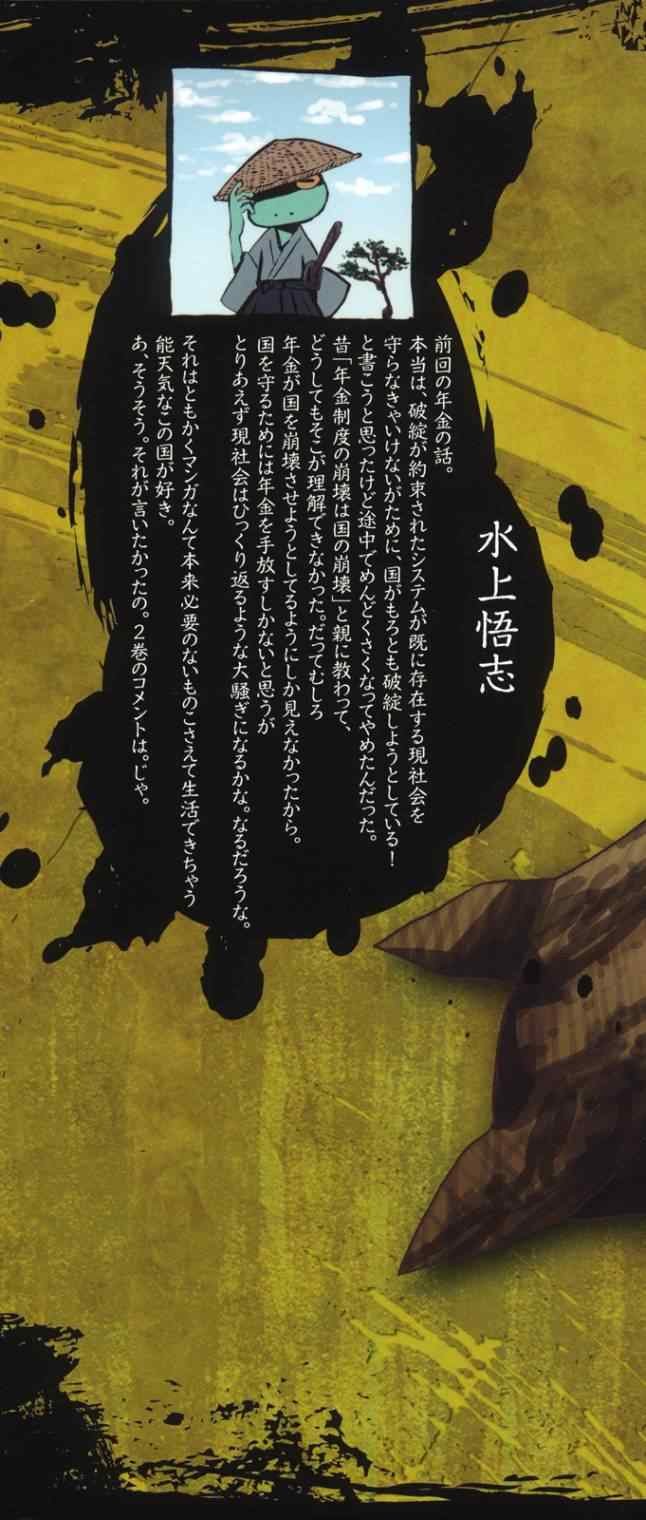 水上悟志
前回の年金の話。
本当は、破綻が約束されたシステムが既に存在する現社会を
守らなきゃいけないがために、国がもろとも破綻しようとしている！
と書こうと思ったけど途中でめんどくさくなってやめたんだった。
昔「年金制度の崩壊は国の崩壊」と親に教わって、
どうしてもそこが理解できなかった。だってむしろ
年金が国を崩壊させようとしてるようにしか見えなかったから。
国を守るためには年金を手放すしかないと思うが
とりあえず現社会はひっくり返るような大騒ぎになるかな。なるだろうな。
それはともかくマンガなんて本来必要のないものこさえて生活できちゃう
能天気なこの国が好き。
あ、そうそう。それが言いたかったの。２巻のコメントは。じゃ。